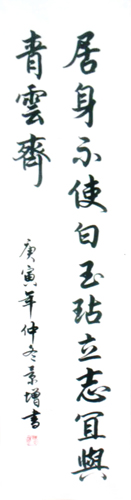 居身不使白玉玷立志宜與
青雲齊
庚寅年仲冬景增書